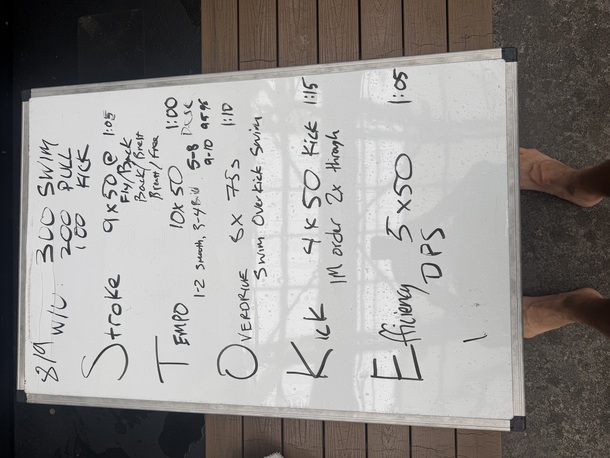 8/9 W/U: 300 SWIM
200 PULL
100 KICK
Stroke 9x50 @ 1:05
Fly/Back
Back/Breast
Breast/Free
TEMPO 10x50 1:00
1-2 Smooth, 3-4 5-8
9-10 95%
OVERDRIVE 6x 75s 1:10
Swim Over Kick Swim
Kick 4x50 Kick 1:15
IM order 2x through
Efficiency 5x50 1:05
DPS